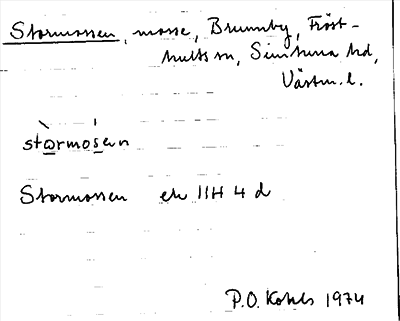 Stormossen, mosse, Brunnby, Fröst-
hults sn, Simtuna hd,
Västm. l.
stòrmósen
Stormossen ek 11H 4 d
P.O. Kohls 1974